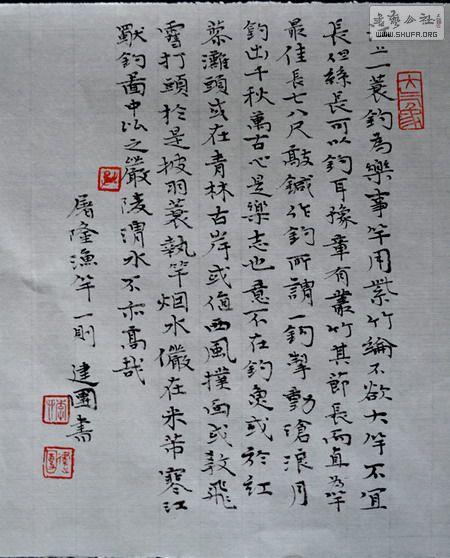 江上一蓑釣為樂事竿用紫竹綸不欲大竿不宜
長但絲長可以釣耳豫章有叢竹其節長而直為竿
最佳長七八尺敲鍼作鈎所謂一鈎掣動滄浪月
釣出千秋萬古心是樂志也意不在釣魚或於紅
蓼灘頭或在青林古岸或值西風撲面或教飛
雪打頭於是披羽蓑執竿烟水儼在米芾寒江
獨釣圖中比之嚴陵渭水不亦高哉
屠隆漁竿一則 建書
书艺公社
WWW.SHUFA.ORG